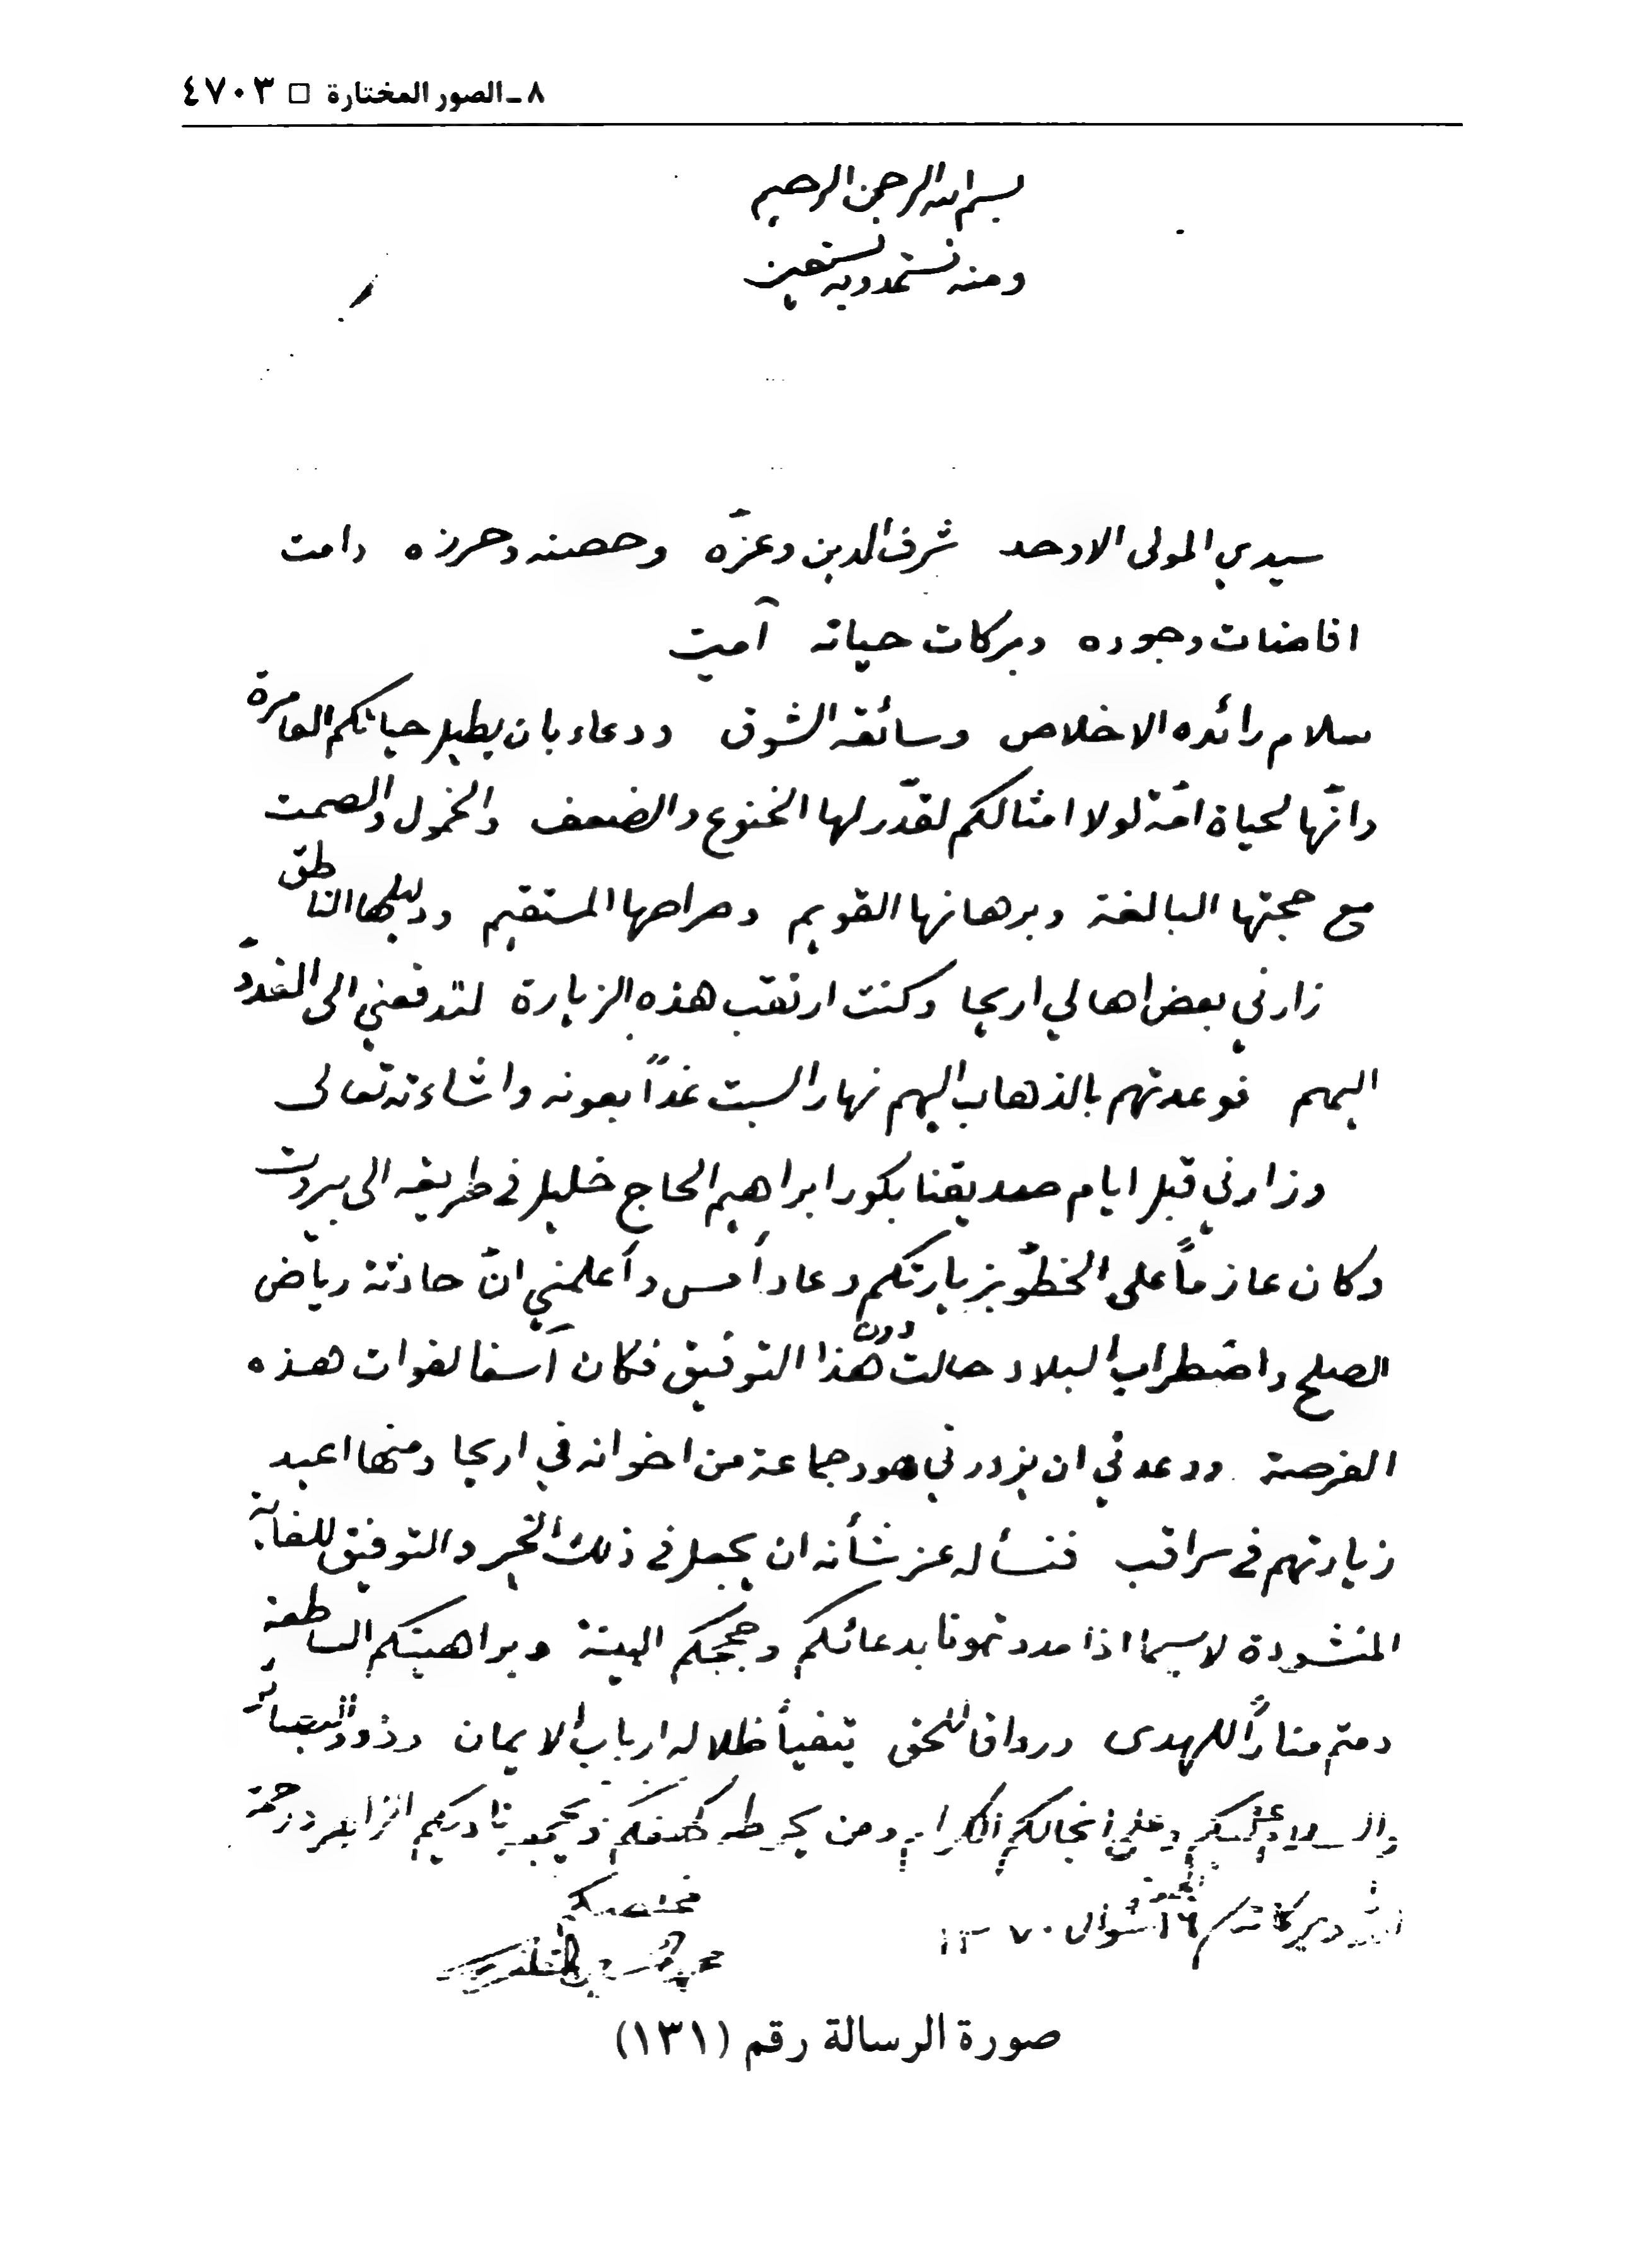 ٨ ـ الصور المختارة □ ٤٧٠٣
بسم الله الرحمن الرحيم
ومنه نستمد وبه نستعين
سيدي المولى الاوحد شرف الدين وعزّه وحصنه وحرزه دامت
افاضات وجوده وبركات حياته آمين
سلام رائده الاخلاص وسائقه الشوق ودعاء بان يطيل حياتكم العامرة
وانّها لحياة امّة لولا امثالكم لقدّر لها الخنوع والضعف والخمول والصمت
مع حجتها البالغة وبرهانها القويم وصراطها المستقيم ودليلها الناطق
زارني بعض اهالي اريحا وكنت ارتقب هذه الزيارة لتدفعني الى الغدوّ
اليهم فوعدتهم بالذهاب اليهم نهار السبت غداً بعونه واشاءته تعالى
وزارني قبل ايام صديقنا بكور ابراهيم الحاج خليل في طريقه الى بيروت
وكان عازماً على الخطوّ بزيارتكم وعاد أمس وأعلمني انّ حادثة رياض
الصلح واضطراب البلاد حالت دون هذا التوفيق فكان آسفا لفوات هذه
الفرصة ووعدني ان يزورني هو وجماعة من اخوانه في اريحا ومنها اعيد
زيارتهم في سراقب فنسأله عز شأنه ان يجعل في ذلك الخير والتوفيق للغاية
المنشودة لاسيما اذا مددتمونا بدعائكم وحججكم البينة وبراهينكم الساطعة
دمتم مناراً للهدى ورواقا للحق يتفيأ ظلاله ارباب الايمان وذوو البصائر
والسلام عليكم وعلى انجالكم الكرام ومن يحوطه كنفكم ويجمعه ناديكم الزاهر ورحمة
الله وبركاته / ١٦ شوال ١٣٧٠
مخلصكم
صورة الرسالة رقم (١٣١)